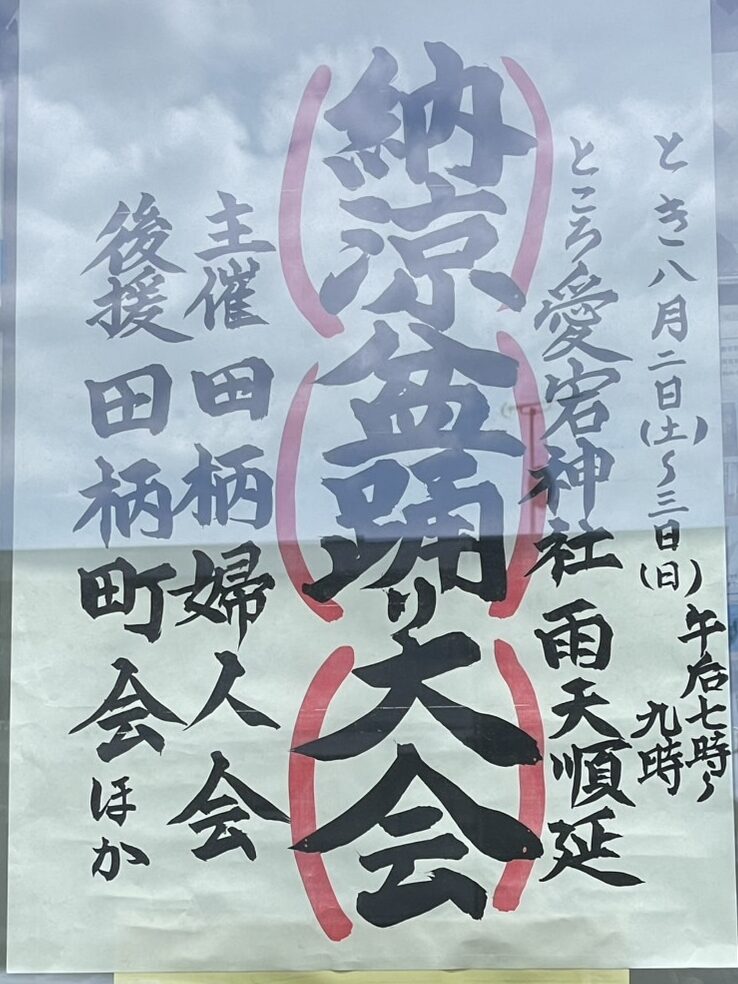 とき八月二日(土)〜三日(日)
午后七時〜
九時
ところ愛宕神社 雨天順延
納涼盆踊り大会
主催 田柄婦人会
後援 田柄町会ほか